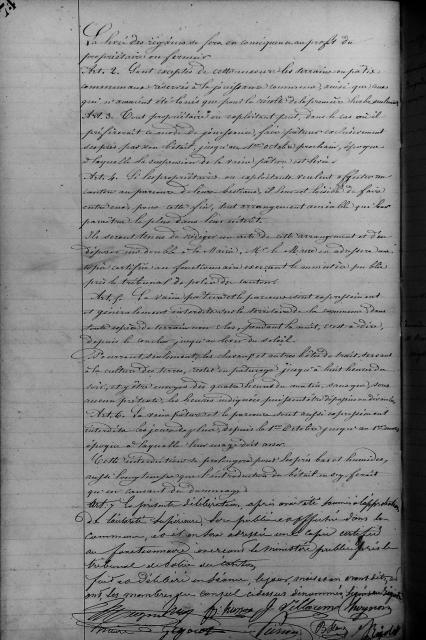 La levée des regains se fera en conséquence au profit du
propriétaire ou fermier
Art. 2. Sont exceptés de cette mesure les terrains en pâtis
communaux réservés à la jouissance commune, ainsi que ceux
qui n'auraient été loués que pour la récolte de la première herbe seulement
Art. 3. Tout propriétaire ou exploitant peut, dans le cas où il
préférerait ce mode de jouissance, faire pâturer exclusivement
ses prés par son bétail, jusqu'au 1er octobre prochain, époque
à laquelle la suspension de la vaine pâture est levée.
Art. 4. Si les propriétaires ou exploitants veulent affecter un
canton au parcours de leurs bestiaux, il leur est loisible de faire
entre eux, pour cette fin, tout arrangement amiable qui leur
paraîtra le plus dans leur intérêt.
Ils seront tenus de rédiger un acte de cet arrangement et d'en
déposer un double à la Mairie, Mr. le Maire en adressera une
copie certifiée au fonctionnaire exerçant le ministère public
près le tribunal de police du canton.
Art. 5. La vaine pâture et le parcours sont expressément
et généralement interdits sur le territoire de la commune dans
toute espèce de terrain non clos, pendant la nuit, c'est à dire,
depuis le coucher jusqu'au lever du soleil.
Pourront seulement, les chevaux et autres bêtes de trait, servant
à la culture des terres, rester en pâturage jusqu'à huit heures du
soir, et y être envoyés dès quatre heures du matin, sans que, sous
aucun prétexte, les heures indiquées puissent être dépassées ou devancées
Art. 6. La vaine pâture et le parcours sont aussi expressément
interdits les jours de pluie, depuis le 1er Octobre jusqu'au 1er
époque à laquelle leur usage doit cesser.
Cette interdiction se prolongera pour les prés bas et humides,
aussi longtemps que l'introduction du bétail ne s'y ferait
qu'en causant du dommage.
Art. 7. La présente délibération, après avoir été soumise à l'approbation
de l'autorité supérieure, sera publiée et affichée dans la
Commune, et il en sera adressé une copie certifiée
au fonctionnaire exerçant le ministère public près le
tribunal de police du canton.
Fait et délibéré en séance, les jour, mois et an avant dits, et
ont, les membres du conseil ci-dessus dénommés, signé